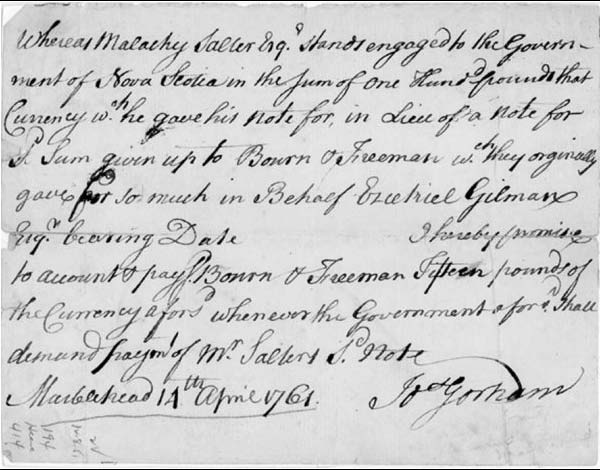 Whereas Malachy Salter Esqr. stands engaged to the Govern-
ment of Nova Scotia in the Sum of One Hund.d pounds that
Currency wch. he gave his Note for, in Lieu of a Note for
Sd. Sum given up to Bourn & Freeman wch. they orginally
gave for so much in Behalf Ezekiel Gilman
Esqr. bearing Date I hereby promise
to account & pay sd. Bourn & Freeman Fifteen pounds of
the Currency afors.d whenever the Government afors.d Shall
demand paymt. of Mr. Salters Sd. Note
Marblehead 14th April 1761.
Jos Gorham